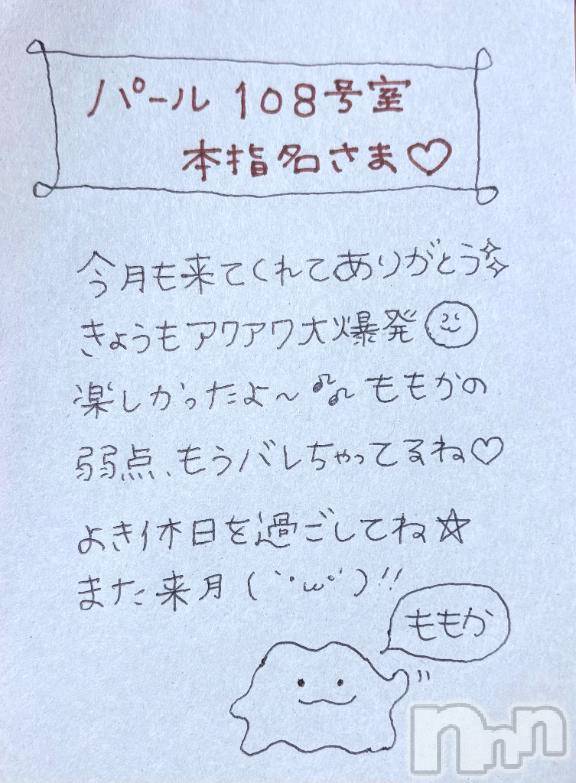 パール 108号室
本指名さま♡
今月も来てくれてありがとう✨
きょうもアワアワ大爆発
楽しかったよ〜♪♫ ももかの
弱点、もうバレちゃってるね♡
よき休日を過ごしてね☆
また来月(´･ω･`)!!
ももか
nnn